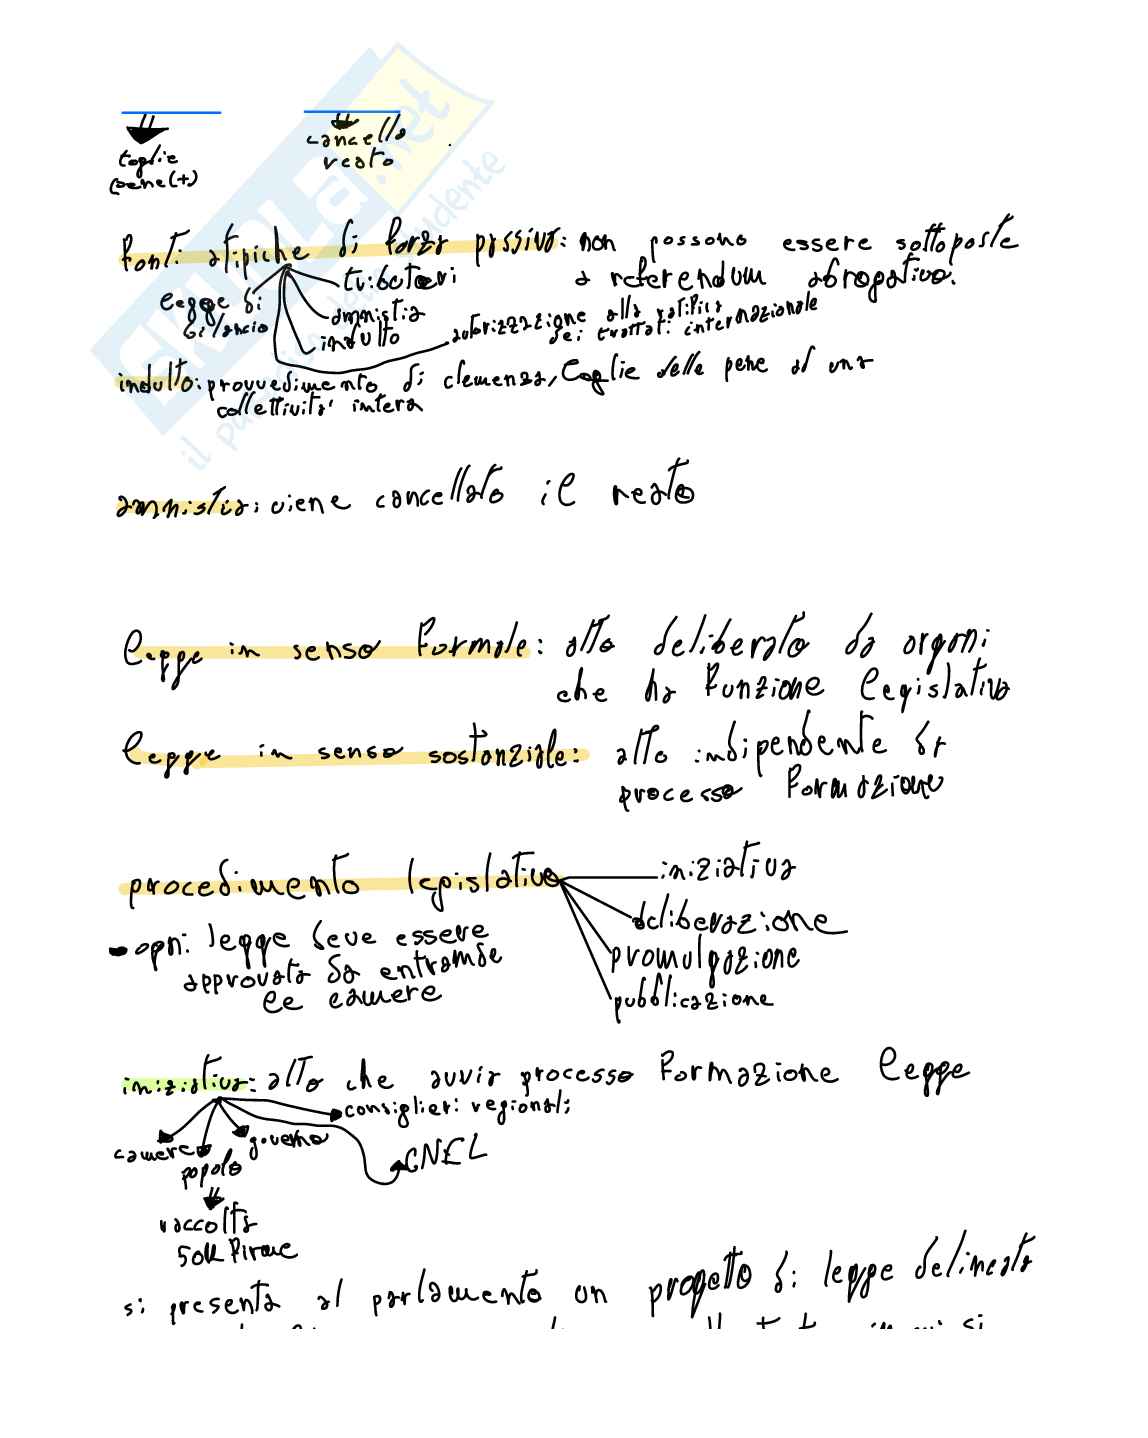 toglie
pene(+)
cancella
reato
fonti atipiche di forza passiva: non possono essere sottoposte
a referendum abrogativo.
tributari
legge di
bilancio
amnistia
indulto
autorizzazione alla ratifica
dei trattati internazionale
indulto: provvedimento di clemenza, toglie delle pene ad una
collettività intera
amnistia: viene cancellato il reato
legge in senso formale: atto deliberato da organi
che ha funzione legislativa
legge in senso sostanziale: atto indipendente da
processo formazione
procedimento legislativo
iniziativa
deliberazione
promulgazione
pubblicazione
ogni legge deve essere
approvata da entrambe
le camere
iniziativa: atto che avvia processo formazione legge
consiglieri regionali
camere
popolo
governo
CNEL
raccolta
50k firme
si presenta al parlamento un progetto di legge delineata
skuola.net
il paradiso dello studente